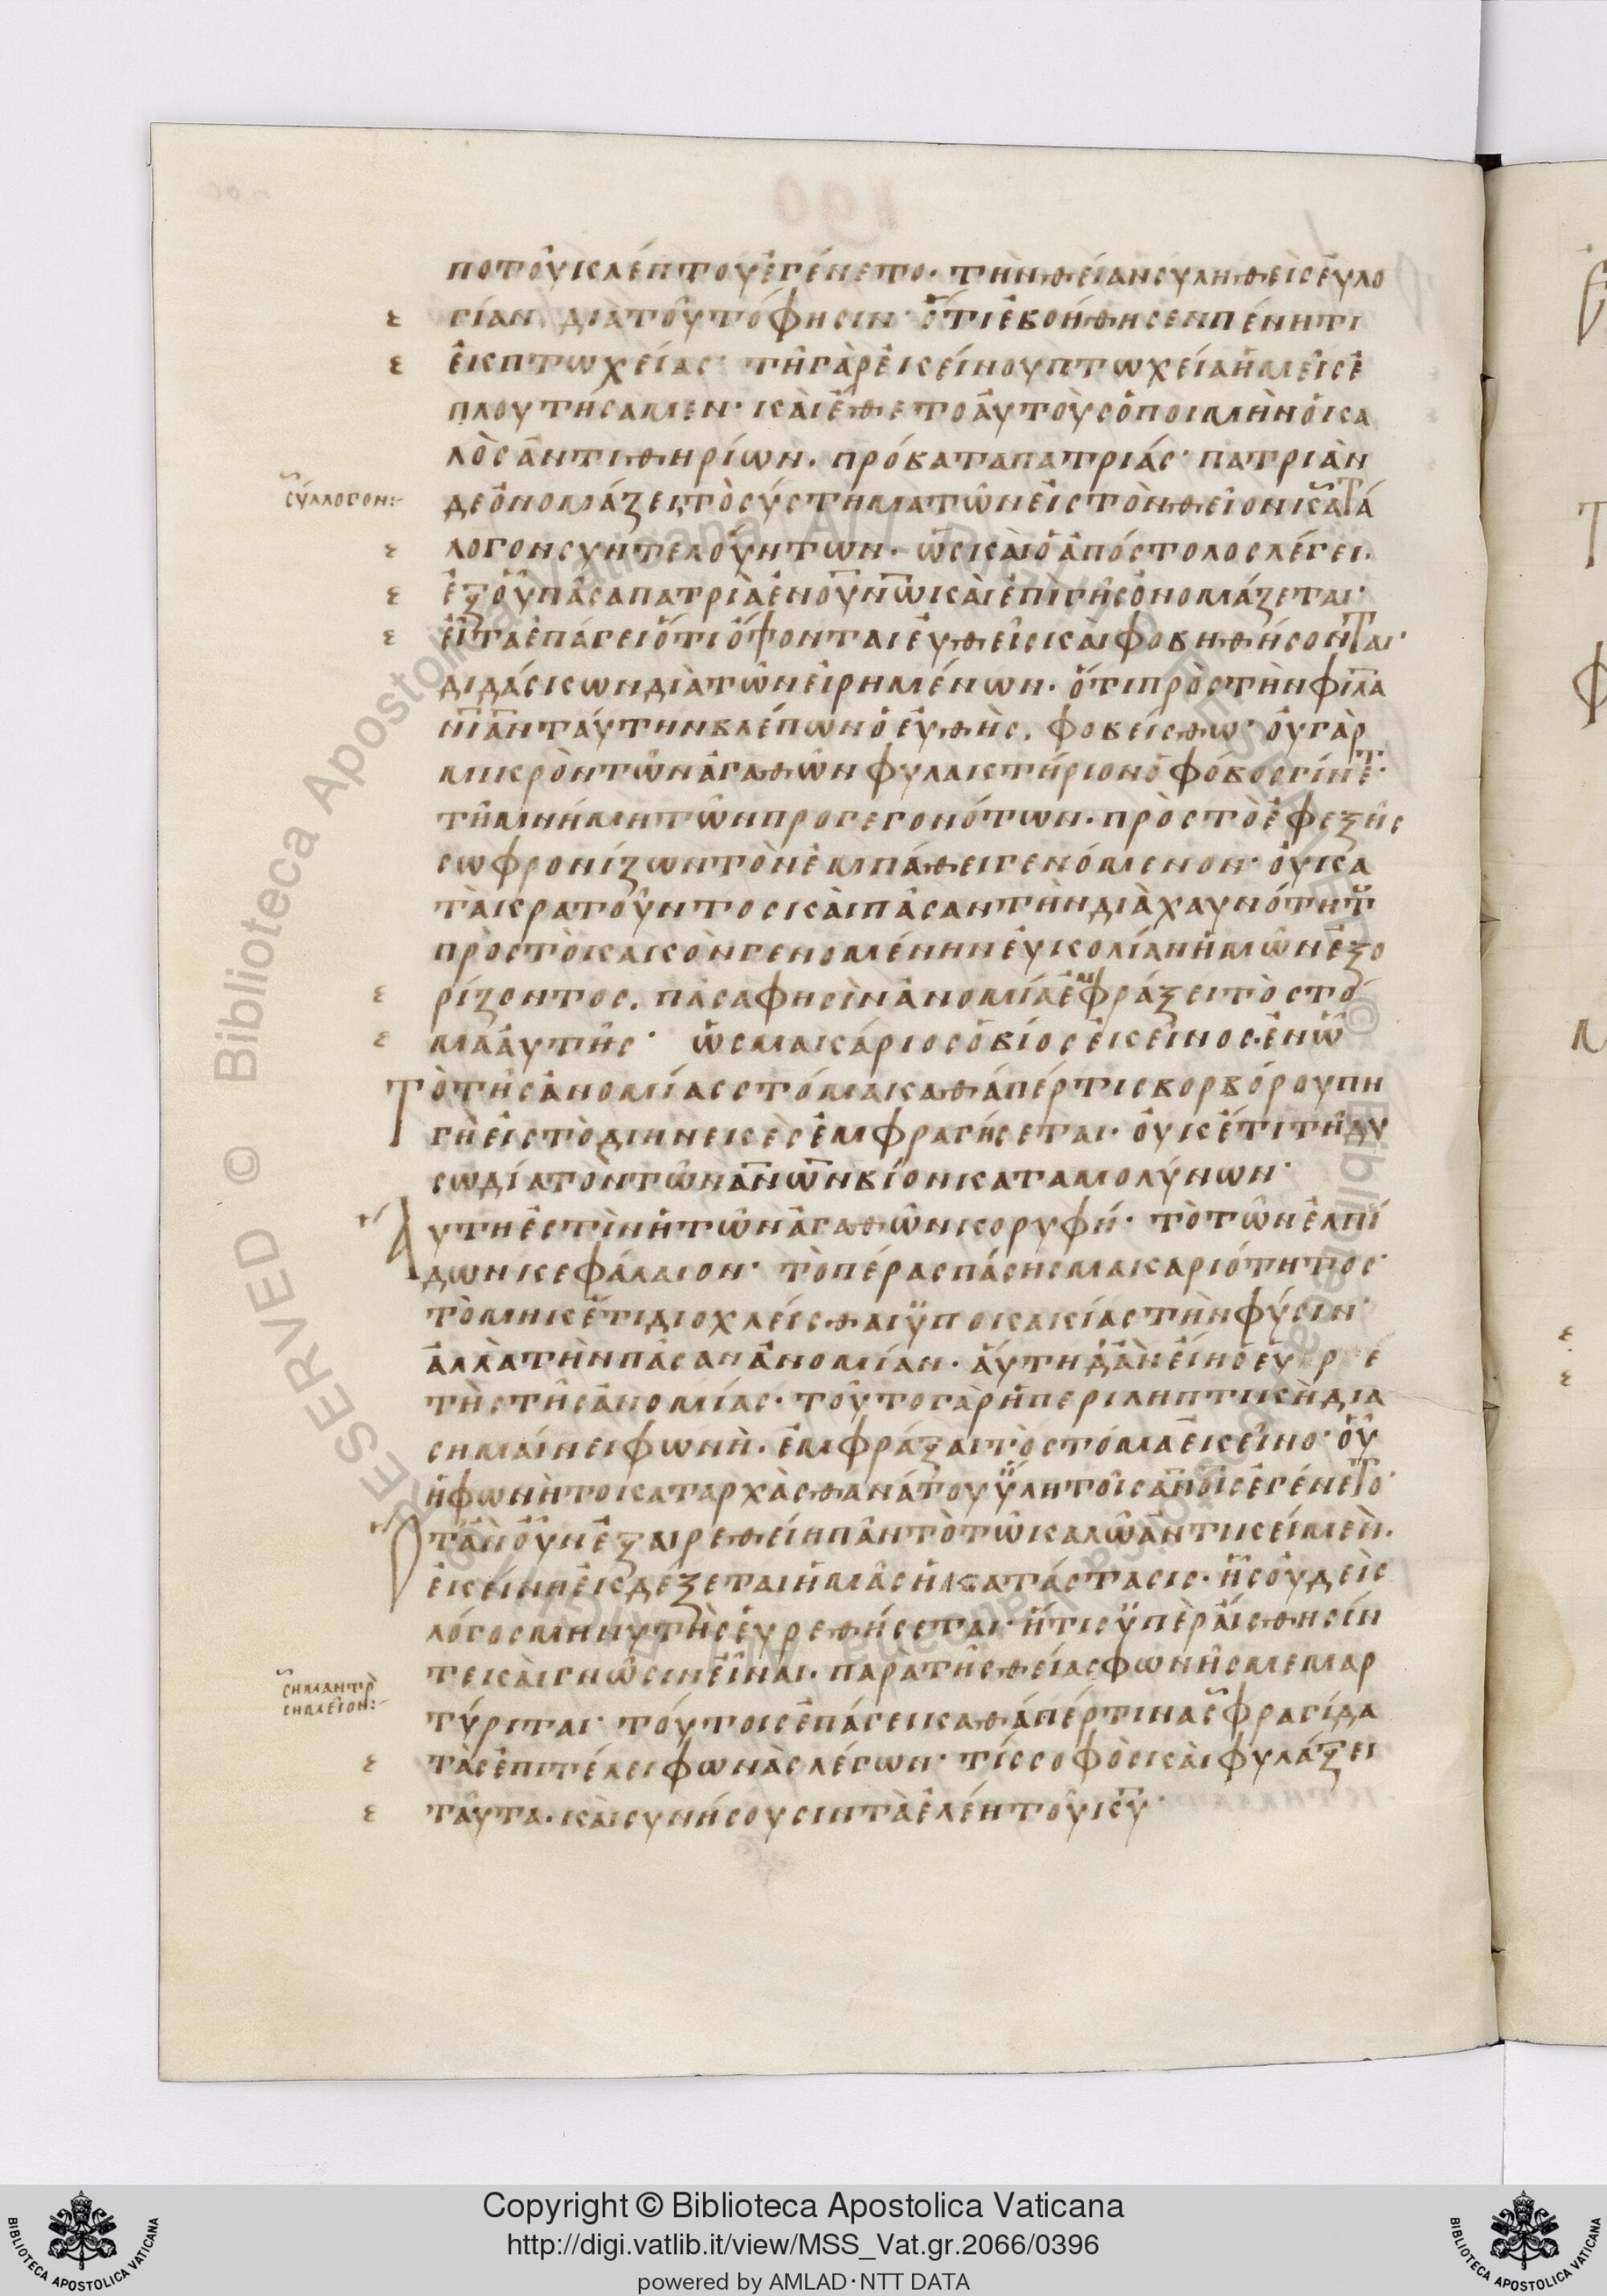 ποτοῦ κλέπτου ἐγένετο· τὴν θείαν συληθεὶς εὐλο
γίαν διατοῦτό φησιν· ὅτι ἐβοήθησεν πένητι
ἐκ πτωχείας· τῆ γὰρ ἐκείνου πτωχεία ἡμεῖς ἐ
πλουτήσαμεν· καὶ ἔθετο αὐτοὺς ὁ ποιμὴν ὁ κα
λὸς ἀντι θηρίων. πρόβατα πατριάς· πατριὰν
σύλλογον:-
δε ὀνομάζει τὸ σύστημα τῶν εἰς τὸν θεῖον κατά
λογον συντελούντων. ὡς καὶ ὁ ἀπόστολος λέγει.
ἐξ οὗ πᾶσα πατριὰ ἐν οὐνῶ καὶ ἐπὶ γῆς ὀνομάζεται·
εἶτα ἐπάγει ὅτι ὄψονται εὐθεῖς καὶ φοβηθήσονται·
διδάσκων διὰ τῶν εἰρημένων· ὅτι πρὸς τὴν φιλα
νιαν ταύτην βλέπων ὁ εὐθὴς. φοβείσθω· οὐ γὰρ
μικρὸν τῶν ἀγαθῶν φυλακτήριον ὁ φόβος γίνετ·
τῆ μνήμη τῶν προγεγονότων. πρὸς τὸ ἐφεξῆς
σωφρονίζων τὸν ἐμπάθει γενόμενον· οὐκ ἀ
τακρατοῦντος καὶ πᾶσαν τὴν διὰ χαυνότητ
πρὸς τὸ κακὸν γενομένην εὐκολίαν ἡμῶν ἐξο
ρίζοντος. πᾶσα φησὶν ἀνομία ἐμφράξει τὸ στό
μα αὐτῆς· ὡς μακάριος ὁ βίος ἐκεῖνος. ἐν ὧ
τὸ τῆς ἀνομίας στόμα καθάπέρ τις βορβόρου πη
γὴ εἰς τὸ διηνεκὲς ἐμφραγήσεται· οὐκ ἔτι τῆ δυ
σωδία τὸν τῶν ἀνων βίον καταμολύνων·
Αὕτη ἐστὶν ἡ τῶν ἀγαθῶν κορυφή· τὸ τῶν ἐλπί
δων κεφάλαιον· τὸ πέρας πάσης μακαριότητος·
τὸ μηκέτι διοχλείσθαι ὑπο κακίας τὴν φύσιν·
ἀλλὰ τὴν πᾶσαν ἀνομίαν. αὕτη δ' ἂν εἴη ὁ εὑρ ε
τὴς τῆς ἀνομίας· τοῦτο γὰρ ἡ περιληπτικὴ δια
σημαίνει φωνὴ. ἐμφράξαι τὸ στόμα ἐκεῖνο· οὗ
ἡ φωνὴ τοκαταρχὰς θανάτου ὕλη τοῖς ανοις ἐγένετο·
Ὅταν οὖν ἐξαιρεθείη πᾶν τὸ τῶ καλῶ ἀντικείμεν.
ἐκείνη ἐκδεξεται ἡμᾶς ἡ κατάστασις· ἧς οὐδεὶς
λόγος μηνυτὴς εὑρεθήσεται· ἥτις ὑπὲρ αἴσθησίν
τε καὶ γνῶσιν εἶναι. παρὰ τῆς θείας φωνῆς μεμαρ
σημαντρ
σημεῖον:-
τύριται· τούτοις ἐπάγει καθάπέρ τινα σφραγίδα
τὰς ἐπιτέλει φωνὰς λέγων· τίς σοφὸς καὶ φυλάξει
ταῦτα. καὶ συνήσουσιν τὰ ἐλέη τοῦ κυ·
Copyright © Biblioteca Apostolica Vaticana
http://digi.vatlib.it/view/MSS_Vat.gr.2066/0396
powered by AMLAD·NTT DATA